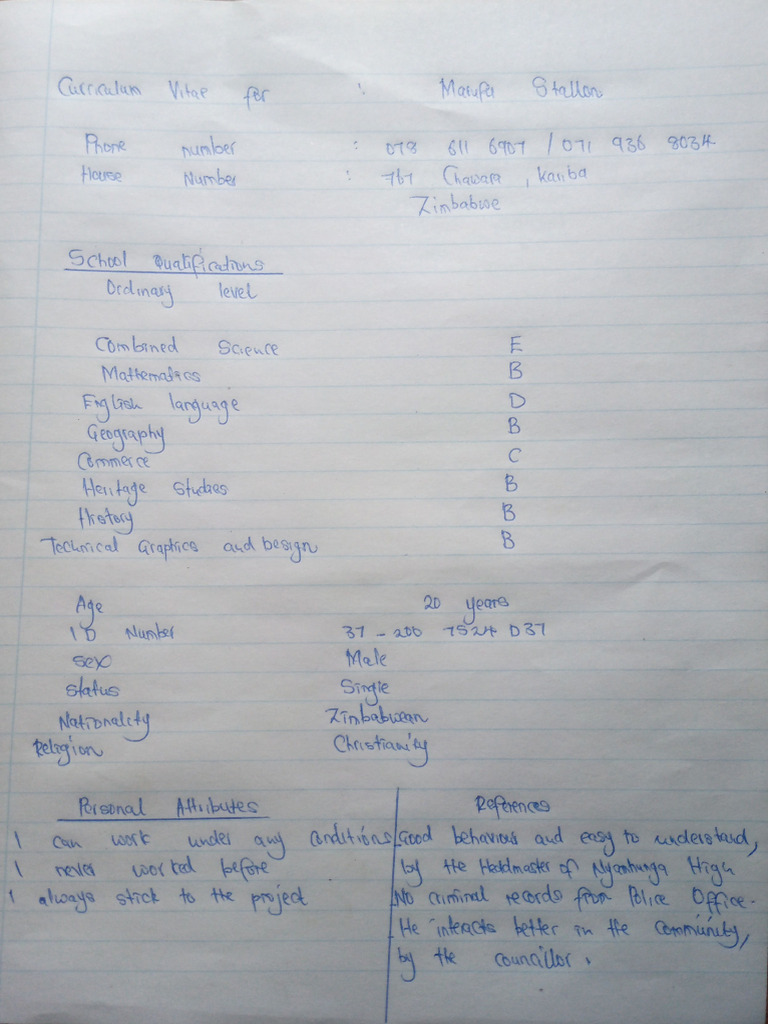 Curriculum Vitae for : Marufa Stallon
Phone number : 078 611 6907 / 071 936 8034
House Number : 767 Chawara, Kariba
Zimbabwe
School Qualifications
Ordinary level
Combined Science E
Mathematics B
English language D
Geography B
Commerce C
Heritage Studies B
History B
Technical Graphics and Design B
Age 20 years
ID Number 37 - 200 7524 D37
Sex Male
Status Single
Nationality Zimbabwean
Religion Christianity
Personal Attributes
I can work under any conditions
I never worked before
I always stick to the project
References
Good behaviour and easy to understand,
by the Headmaster of Nyamhunga High
No criminal records from Police Office.
He interacts better in the community,
by the councillor.